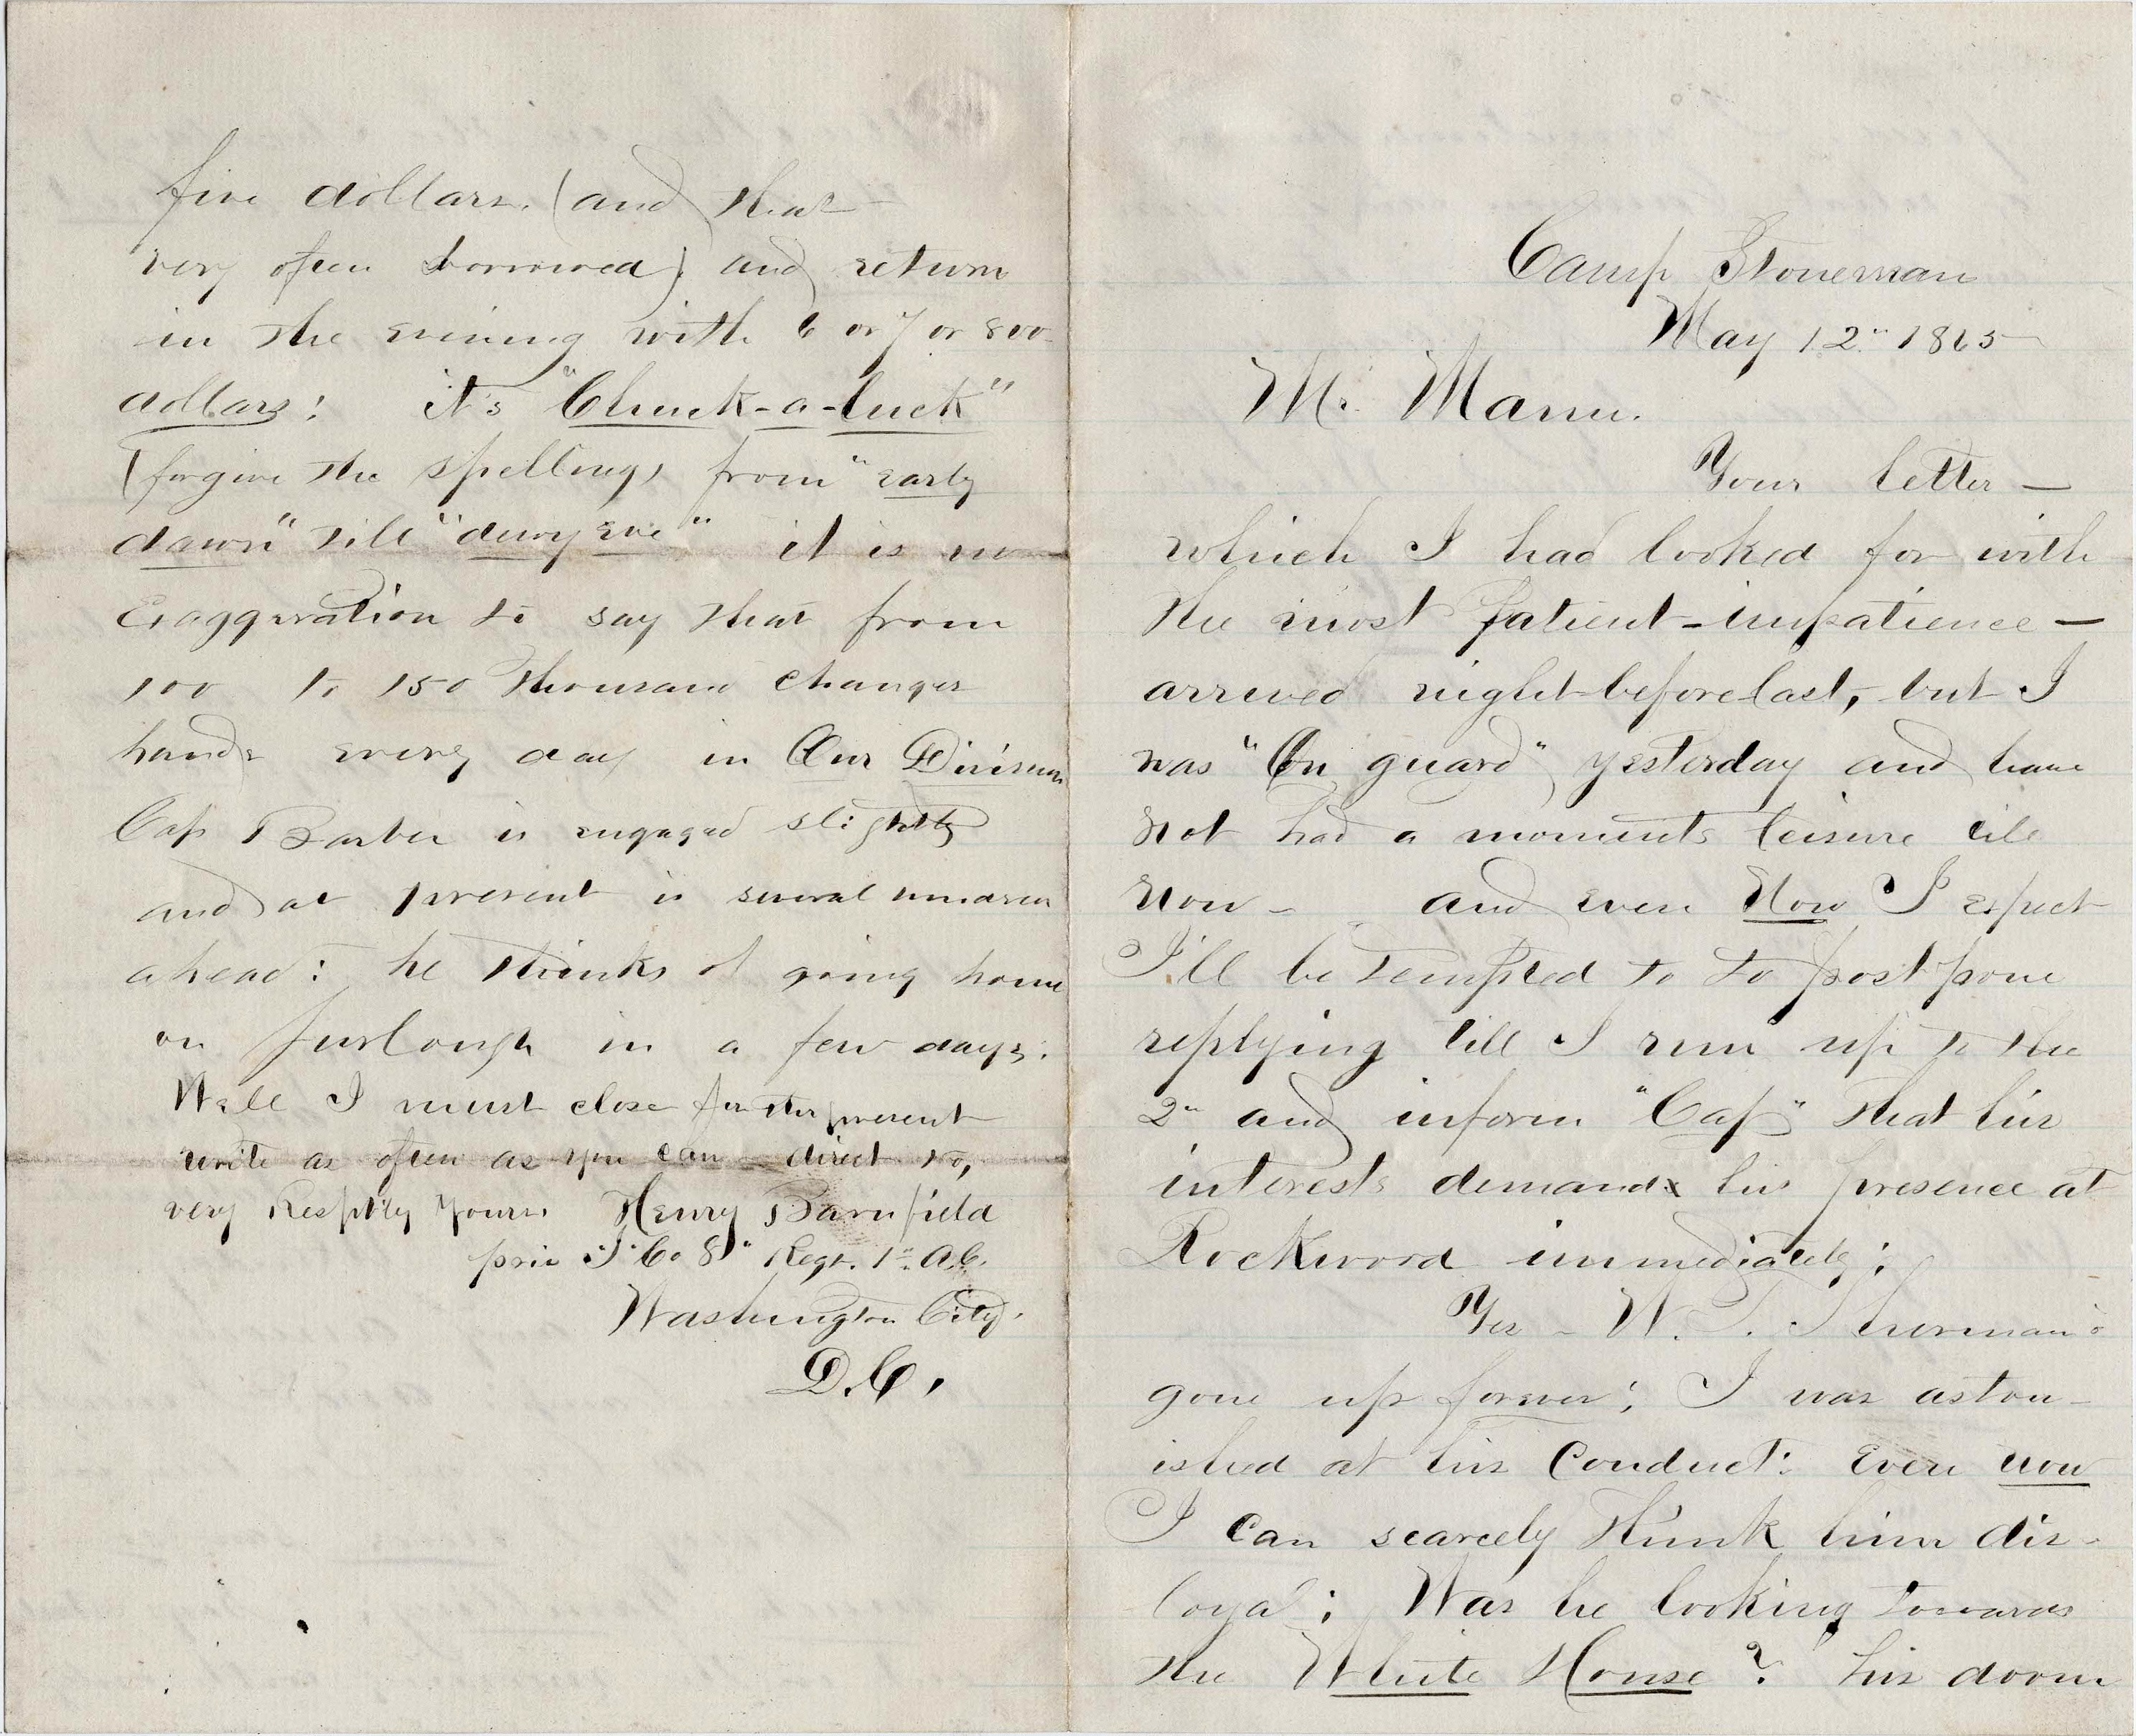 Camp Stoneman
May 12" 1865
Mr. Mann.
Your letter —
which I had looked for with
the most patient-impatience —
arrived night before last, but I
was "On guard" yesterday and have
not had a moments leisure till
now - and even Now I expect
I'll be tempted to to postpone
replying till I run up to the
2" and inform "Cap" that his
interests demands his presence at
Rockwood immediately;
Yes - W. T. Sherman's
gone up forever; I was aston-
ished at his conduct: Even now
I can scarcely think him dis-
loyal; Was he looking towards
the White House? his doom
five dollars. (and that
very often borrowed) and return
in the evening with 6 or 7 or 800
dollars: it's "Chuck-a-luck"
(forgive the spelling) from "early
dawn" till "dewy eve" it is no
Exaggeration to say that from
100 to 150 Thousand changes
hands every day in Our Division
Cap Barber is engaged slightly
and at present is several hundred
ahead: he thinks of going home
on furlough in a few days:
Well I must close for the present
write as often as you can - direct to,
very Resptly Yours Henry Barnfield
priv "I" Co 8" Regt. 1st A.C.
Washington City.
D.C.